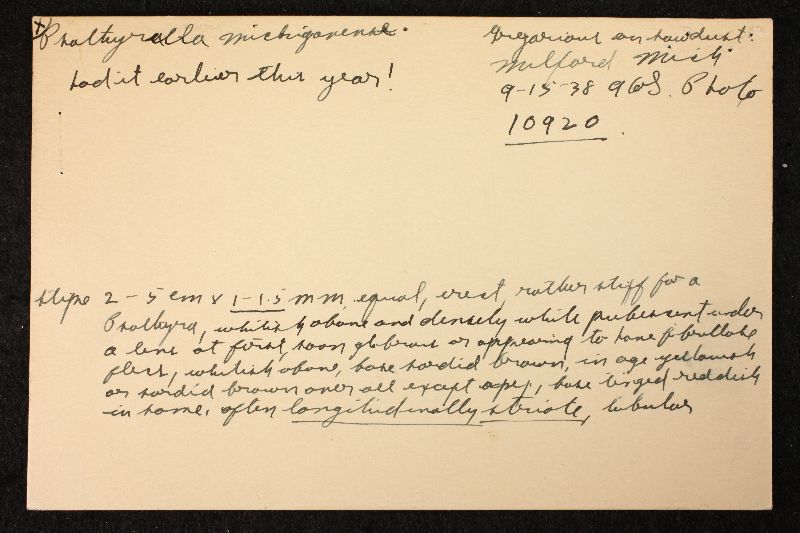 Psathyrella michiganense.
had it earlier this year!
Gregarious on sawdust.
Milford Mich
9-15-38 Photo
10920.
stipe 2-5 cm x 1-1.5 mm, equal, erect, rather stiff for a
Psathyra, whitish above and densely white pubescent under
a lens at first, soon glabrous or appearing to have fibrillose
flecs, whitish above, base sordid brown, in age yellowish
or sordid brown over all except apex, base tinged reddish
in some, often longitudinally striate, tubular